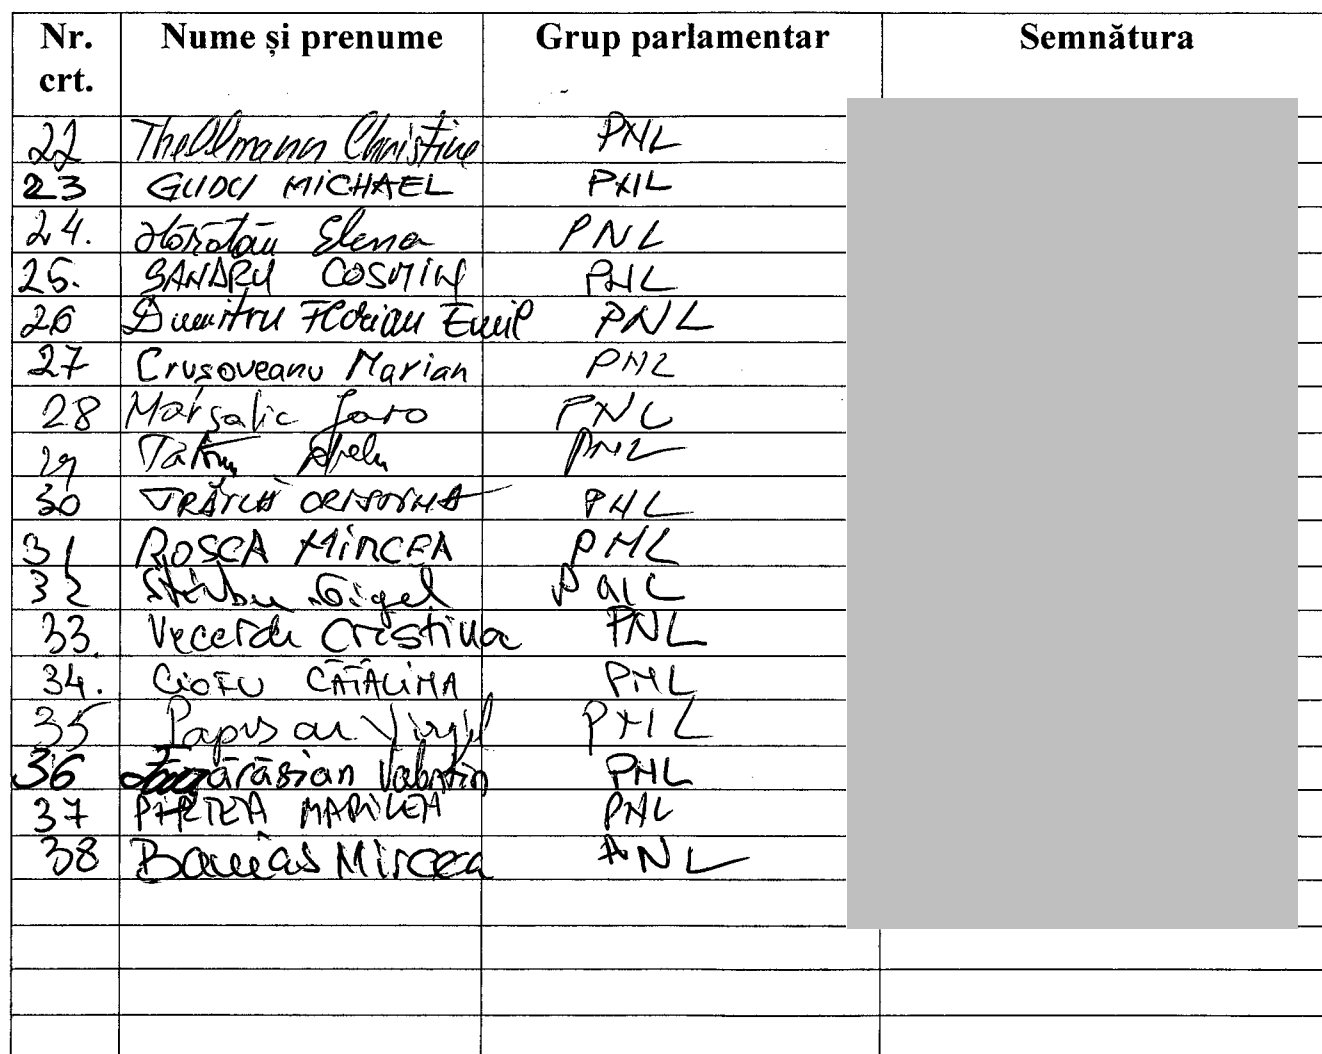 Nr. crt. Nume și prenume Grup parlamentar Semnătura
22 Thellmann Christine PNL
23 GUDU MICHAEL PNL
24. Hărătău Elena PNL
25. SANDRU COSMIN PNL
26 Dumitru Florian Emil PNL
27 Crușoveanu Marian PNL
28 Marșalic Jaro PNL
29 PNL
30 TRĂILĂ CRISTINA PNL
31 ROSCA MIRCEA PNL
32 Știrbu Gigel PNL
33. Vecerdi Cristina PNL
34. CIOFU CĂTĂLINA PNL
35 Virgil PNL
36 Făgărășian Valentin PNL
37 PIRTEA MARILEN PNL
38 Banias Mircea PNL